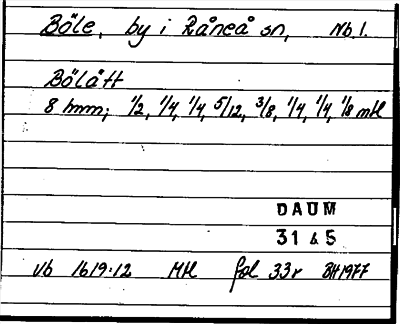 Böle, by i Råneå sn, Nb. l.
Bölått
8 hmm; 1/2, 1/4, 1/4, 5/12, 3/8, 1/4, 1/4, 1/8 mtl
DAUM
3145
Vb 1619:12 Mtl fol 33r BH 1977